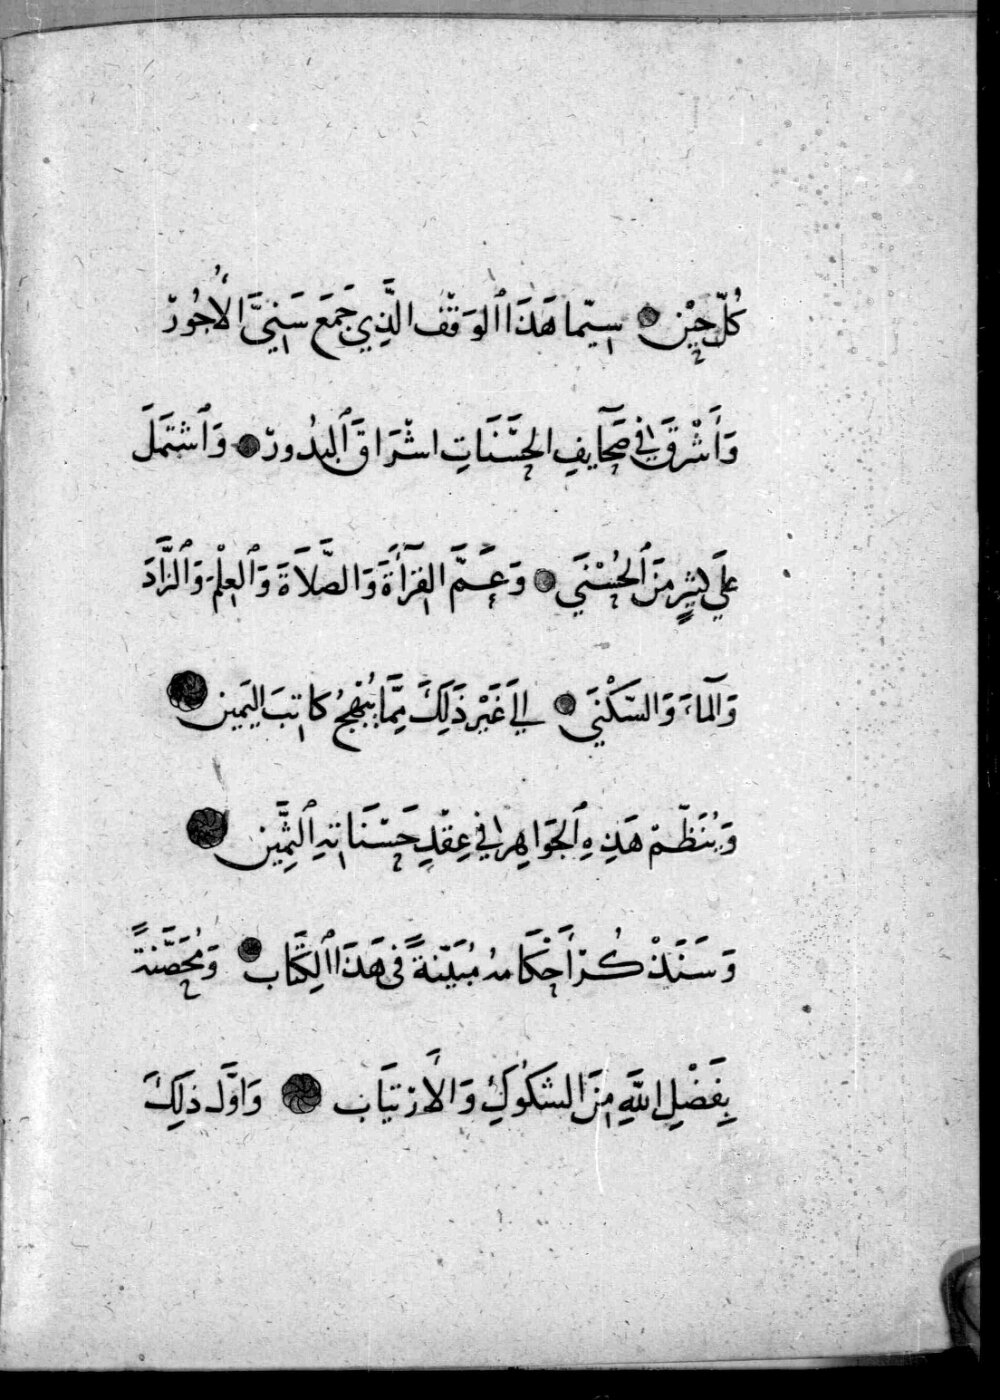 كُلّ حِيْنٍ سيّما هَذَا ٱلوَقْف الَّذِي جَمَعَ سَنِيَّ الأُجُورْ
وَأَشْرَقَ في صَحَآيِفِ الحَسَنَاتِ اشْرَاقَ ٱلبدُورْ وَٱشْتَمَلَ
عَلَى كثيرٍ مِنَ ٱلحُسْنَى وَعَمَّ القِرآءَةَ وَالصَّلَاةَ وَٱلعِلْمَ وَٱلزَّادَ
وَٱلمآءَ وَالسّكْنَى إلى غَيْرِ ذَلِكَ مِمَّا يُبْهِجُ كاتِبَ اليَمين
وَيُنَظّمْ هَذِهِ ٱلجَوَاهِر في عِقْدِ حَسَنَاتِهِ ٱلثَّمِين
وَسَنَذْكُرْ أَحْكَامهُ مُبَيّنَةً فى هَذَا ٱلكِتَاب وَمُحَصَّنَةً
بِفَضْلِ اللَّهِ مِنَ الشكُوكِ وَالأَرْتيَاب وَاوَّل ذَلِكَ